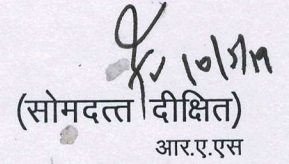 10/7/19
(सोमदत्त दीक्षित)
आर.ए.एस